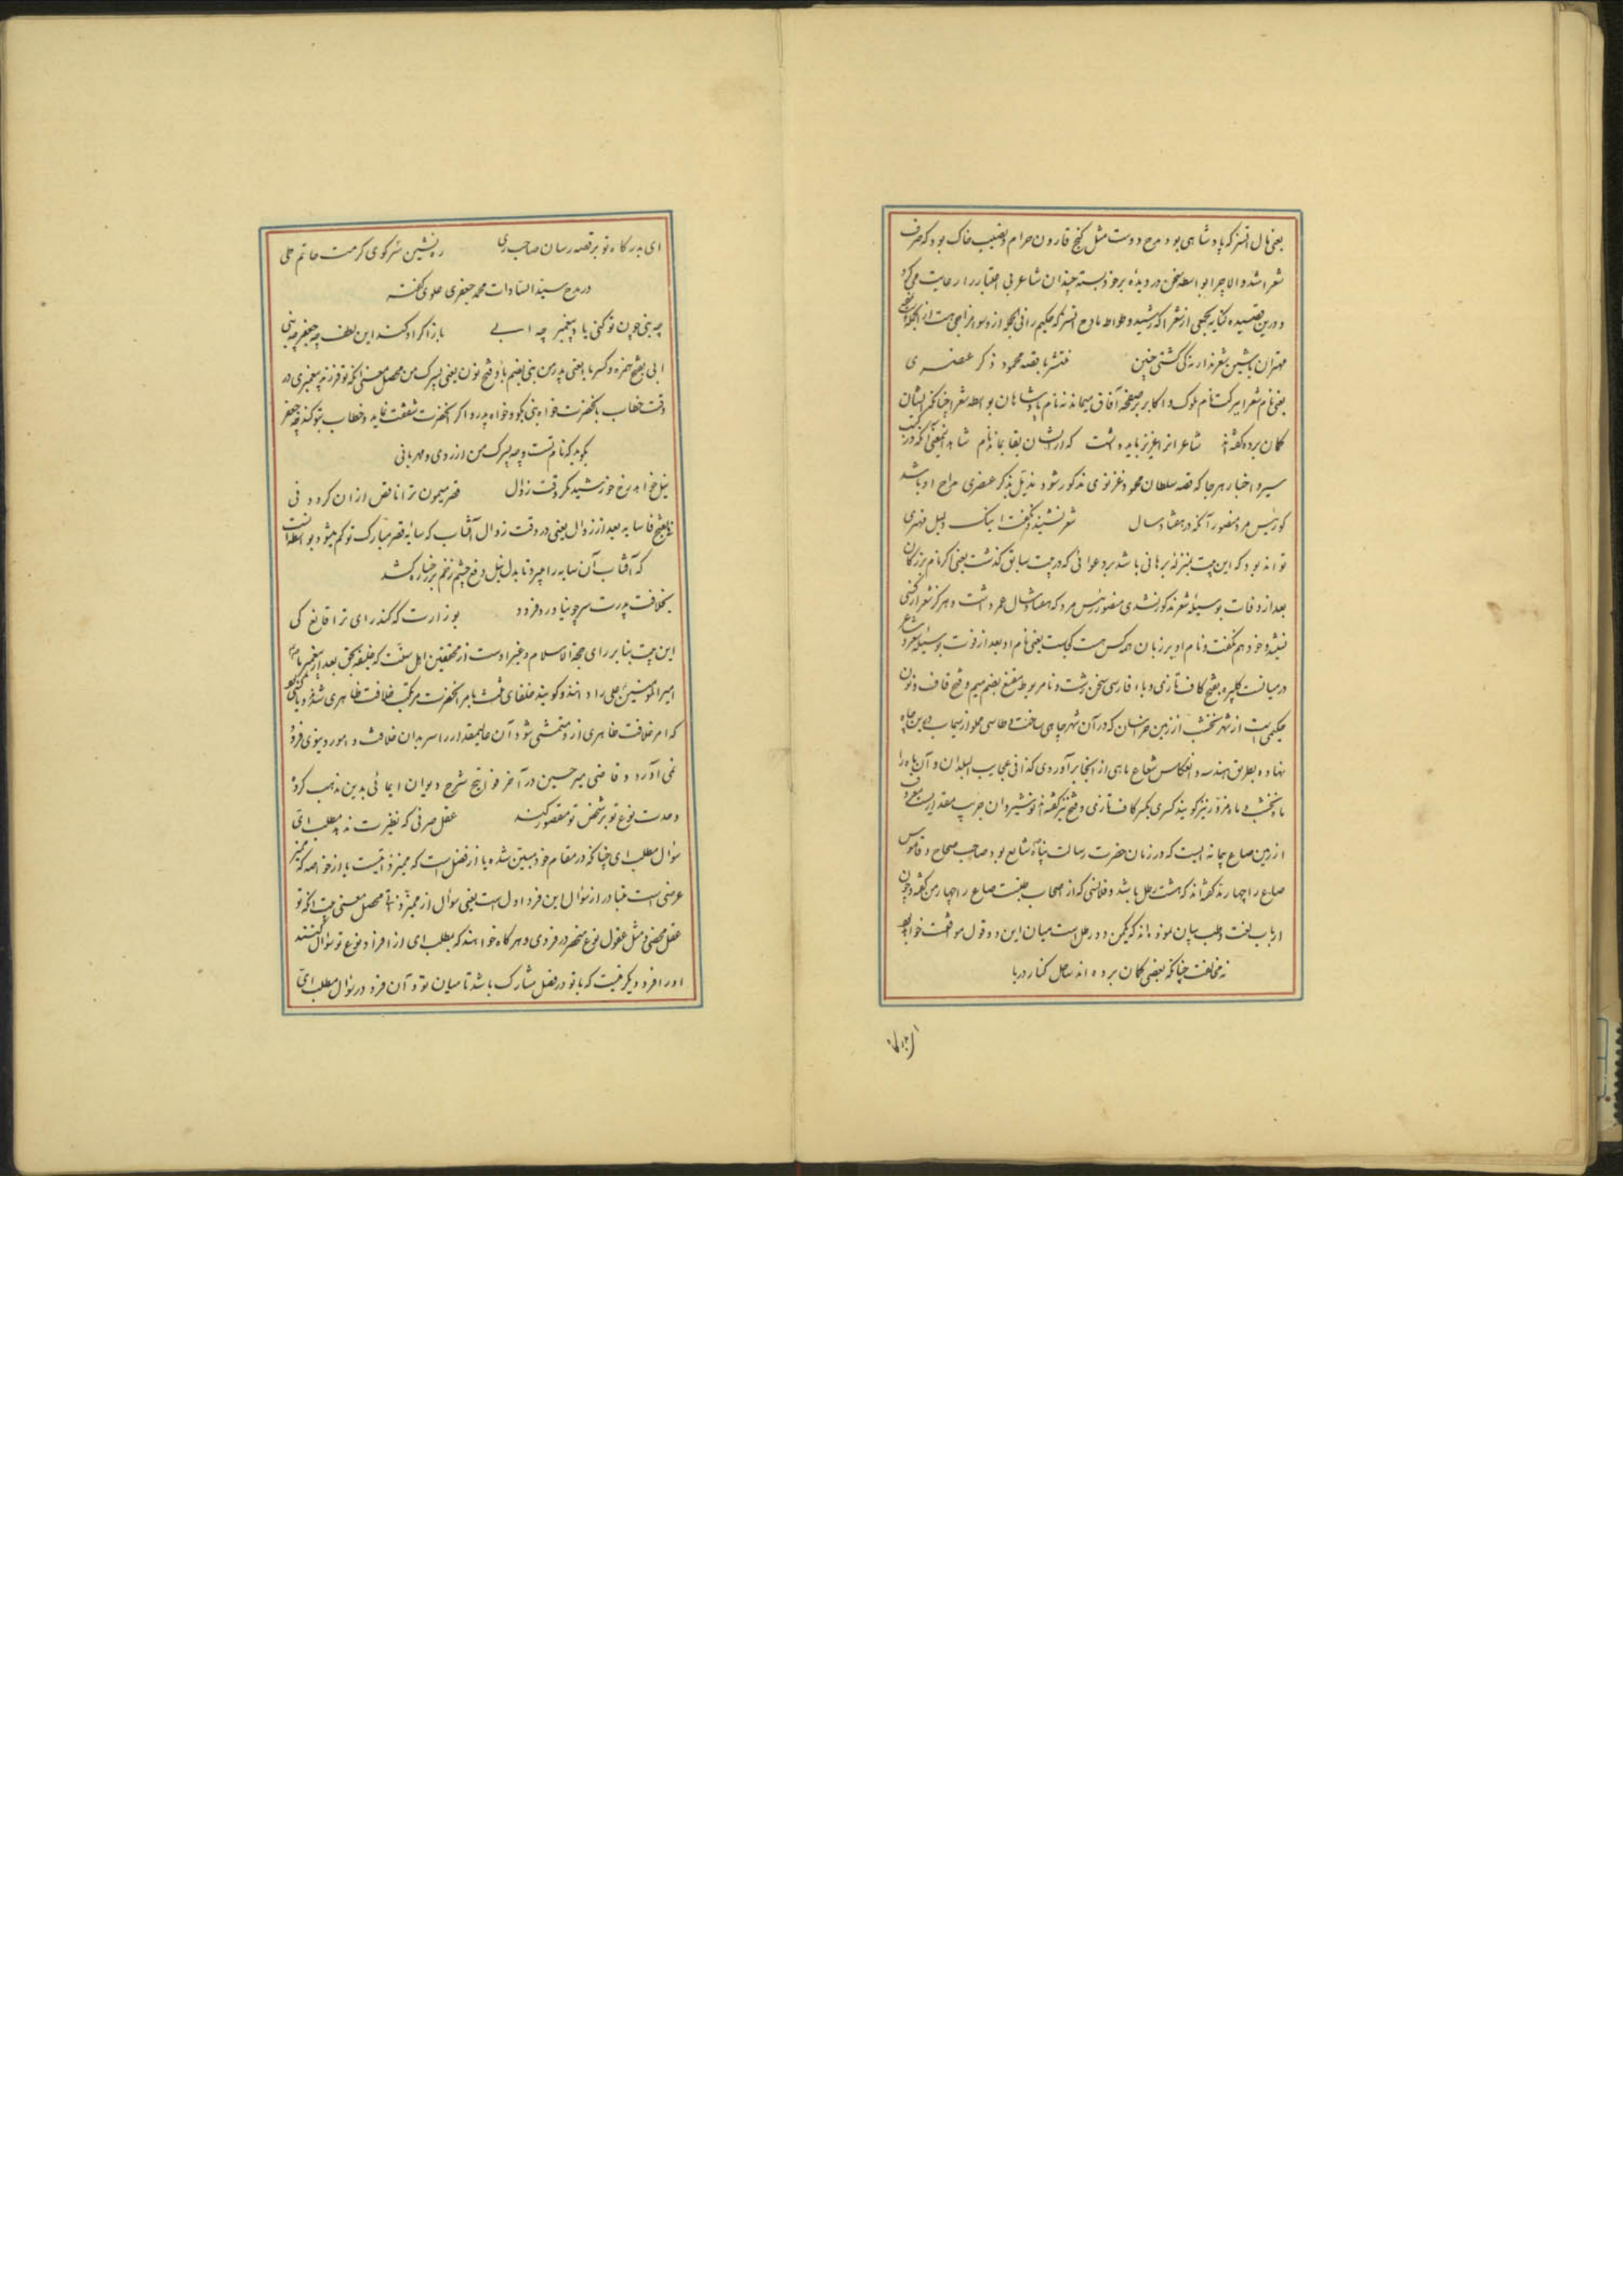 یعنی مال اتسز که پادشاهی بود مرح دوست مثل کنج قارون حرام و نصیب خاک بود که صرف
شعرا شد و الا چرا بواسطه سخن در دیده برخود بسته چندان شاعر بی اعتبار را رعایت می کرد
و درین قصیده کنایه بجمعی از شعرا که رشید وطواط مادح اتسز که حکیم را فی الجمله از و سوء مزاجی هست از آنجمله
مهتران بی شین شعرند ار نه کی کشتی چنین منتشر با قصه محمود ذکر عنصری
یعنی نام شعرا ببرکت نام ملوک و اکابر بر صفحه آفاق میماند نه نام پادشاهان بواسطه شعرا چنانکه ایشان
کمان برده کفته اند شاعرانرا عزیز باید داشت که از ایشان بقا بماند نام شاهد آنمعنی آنکه در کتب
سیر و اخبار هر جا که قصه سلطان محمود غزنوی مذکور شود مذیل بذکر عنصری مداح او باشد
کو رئیس مرو منصور آنکه در هفتاد سال شعر نشنید و نکفت اینک دلیل مهتری
تواند بود که این بیت بمنزله برهانی باشد بر دعوائی که در بیت سابق کذشت یعنی اکر نام بزرکان
بعد از وفات بوسیله شعر مذکور شدی منصور رئیس مرو که هفتاد سال عمر داشت و هرکز شعر از کسی
نشنید و خود هم نکفت و نام او بر زبان همه کس هست کجاست یعنی نام او بعد از فوت بوسیله شعر و شاعر
در میانست کلپتره بفتح کاف تازی و باء فارسی سخن زشت و نامربوط مقنع بضم میم و فتح قاف و نون
حکیمی است از شهر نخشب از زمین خراسان که در آن شهر چاهی ساخت و طاسی مملو از سیماب در بن چاه
نهاده بطریق هندسه و انعکاس شعاع ماهی از آنجا بر آوردی کذا فی عجایب البلدان و آن ماه را
ماه نخشب و ماه مزور نیز کویند کسری بکسر کاف تازی و فتح نیز کفته اند نوشیروان جریب مقداریست معروف
از زمین صاع پیمانه ایست که در زمان حضرت رسالت پناه شایع بود صاحب صحاح و قاموس
صاع را چهار مد کفته اند که هشت رطل باشد و فلانسی که از اصحاب لغتست صاع را چهار من کفته و چون
ارباب لغت و طب بیان نموده اند که یکمن دو رطل است میان این دو قول موافقت خواهد بود
نه مخالفت چنانکه بعضی کمان برده اند ساحل کنار دریا
ای بدرکاه تو بر قصه رسان صاحب ری ره نشین سر کوی کرمت حاتم طی
در مدح سید السادات محمد جعفری علوی کفته
چه بنی چون تو کنی یاد پیغمبر چه ابی باز اکر او کند این لطف چه جعفر چه بنی
ابی بفتح همزه و کسر با یعنی پدر من بنی بضم باء و فتح نون یعنی پسرک من محصل معنی آنکه تو فرزند پیغمبری در
وقت خطاب بآنحضرت خواه بنی بکو و خواه پدر و اکر آنحضرت شفقت نماید و خطاب بتو کند چه جعفر
بکوید که نام تست و چه پسرک من از روی مهربانی
نیل خواهد رخ خورشید مکر وقت زوال قصر میمون ترا ناقص ازان کردد فی
فی بفتح فا سایه بعد از زوال یعنی در وقت زوال آفتاب که سایه قصر مبارک تو کم میشود بواسطه آنست
که آفتاب آن سایه را میبرد تا بدل نیل دفع چشم زخم بر رخسار کشد
بخلافت پدرت سر چو نیاورد فرود بوزارت که کند رای ترا قانع کی
این بیت بنا بر رای حجة الاسلام و غیر اوست از محققین اهل سنت که خلیفه بحق بعد از پیغمبر ما
امیر المؤمنین علی را دانند و کویند خلفای ثلث بامر آنحضرت مرتکب خلافت ظاهری شدند
که امر خلافت ظاهری از و متمشی شود آن عالیمقدار را سر بدان خلافت و امور دنیوی فرود
نمی آورد و قاضی میر حسین در آخر فواتح شرح دیوان ایمائی بدین مذهب کرده
وحدت نوع تو بر شخص تو مقصور کند عقل صرفی که نظیرت ندهد مطلب ای
سؤال مطلب ای چنانکه در مقام خود مبین شده یا از فصل است که ممیز ذاتیست یا از خواصه که ممیز
عرضی است متبادر از سؤال این فرد اول است یعنی سؤال از ممیز ذاتی محصل معنی بیت آنکه تو
عقل محضی و مثل عقول نوع منحصر در فردی و هر کاه خواهند که بمطلب ای از افراد نوع تو سؤال کنند
او را فرد دیکر نیست که با تو در فصل مشارک باشد تا میان تو و آن فرد در سؤال مطلب ای